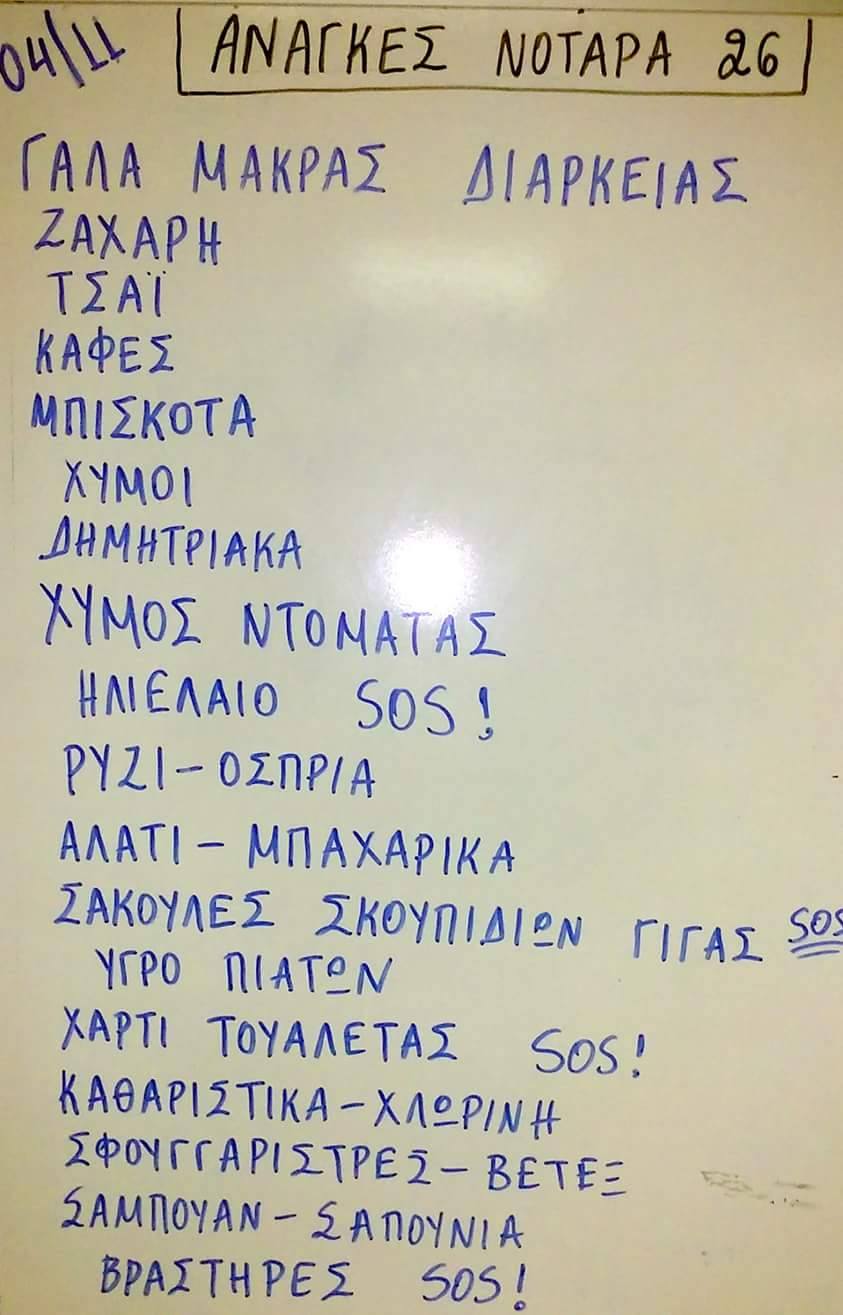 04/11 ΑΝΑΓΚΕΣ ΝΟΤΑΡΑ 26
ΓΑΛΑ ΜΑΚΡΑΣ ΔΙΑΡΚΕΙΑΣ
ΖΑΧΑΡΗ
ΤΣΑΪ
ΚΑΦΕΣ
ΜΠΙΣΚΟΤΑ
ΧΥΜΟΙ
ΔΗΜΗΤΡΙΑΚΑ
ΧΥΜΟΣ ΝΤΟΜΑΤΑΣ
ΗΛΙΕΛΑΙΟ SOS!
ΡΥΖΙ - ΟΣΠΡΙΑ
ΑΛΑΤΙ - ΜΠΑΧΑΡΙΚΑ
ΣΑΚΟΥΛΕΣ ΣΚΟΥΠΙΔΙΩΝ ΓΙΓΑΣ SOS
ΥΓΡΟ ΠΙΑΤΩΝ
ΧΑΡΤΙ ΤΟΥΑΛΕΤΑΣ SOS!
ΚΑΘΑΡΙΣΤΙΚΑ - ΧΛΩΡΙΝΗ
ΣΦΟΥΓΓΑΡΙΣΤΡΕΣ - ΒΕΤΕΞ
ΣΑΜΠΟΥΑΝ - ΣΑΠΟΥΝΙΑ
ΒΡΑΣΤΗΡΕΣ SOS!